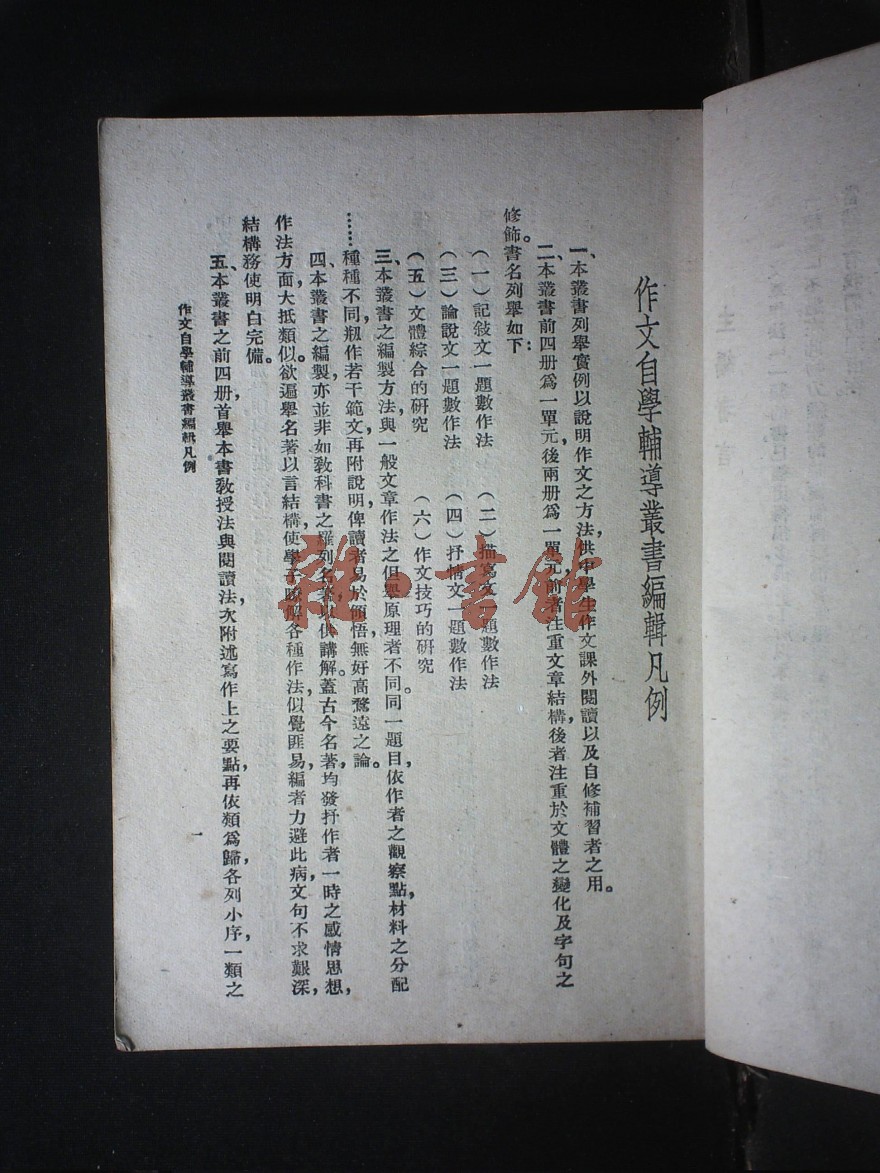 作文自學輔導叢書編輯凡例
一、本叢書列舉實例以說明作文之方法，供中學生作文課外閱讀以及自修補習者之用。
二、本叢書前四册爲一單元，後兩册爲一單元，前者注重文章結構，後者注重於文體之變化及字句之
修飾。書名列舉如下：
（一）記敍文一題數作法　（二）描寫文一題數作法
（三）論說文一題數作法　（四）抒情文一題數作法
（五）文體綜合的硏究　（六）作文技巧的硏究
三、本叢書之編製方法，與一般文章作法之但舉原理者不同，同一題目，依作者之觀察點，材料之分配
……種種不同，剏作若干範文，再附說明，俾讀者易於領悟，無好高騖遠之論。
四、本叢書之編製亦並非如敎科書之羅列名著，以供講解。蓋古今名著，均發抒作者一時之感情思想，
作法方面，大抵類似。欲遍舉名著以言結構，使學子瞭解各種作法，似覺匪易，編者力避此病，文句不求艱深，
結構務使明白完備。
五、本叢書之前四册，首舉本書敎授法與閱讀法，次附述寫作上之要點，再依類爲歸，各列小序，一類之
作文自學輔導叢書編輯凡例
一
雜·書館